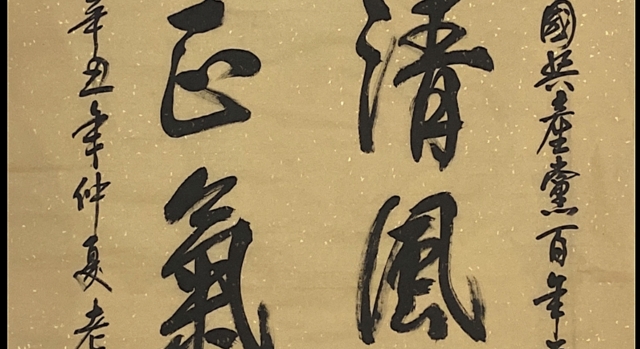 國共產黨百年
清風
正氣
辛丑年仲夏老